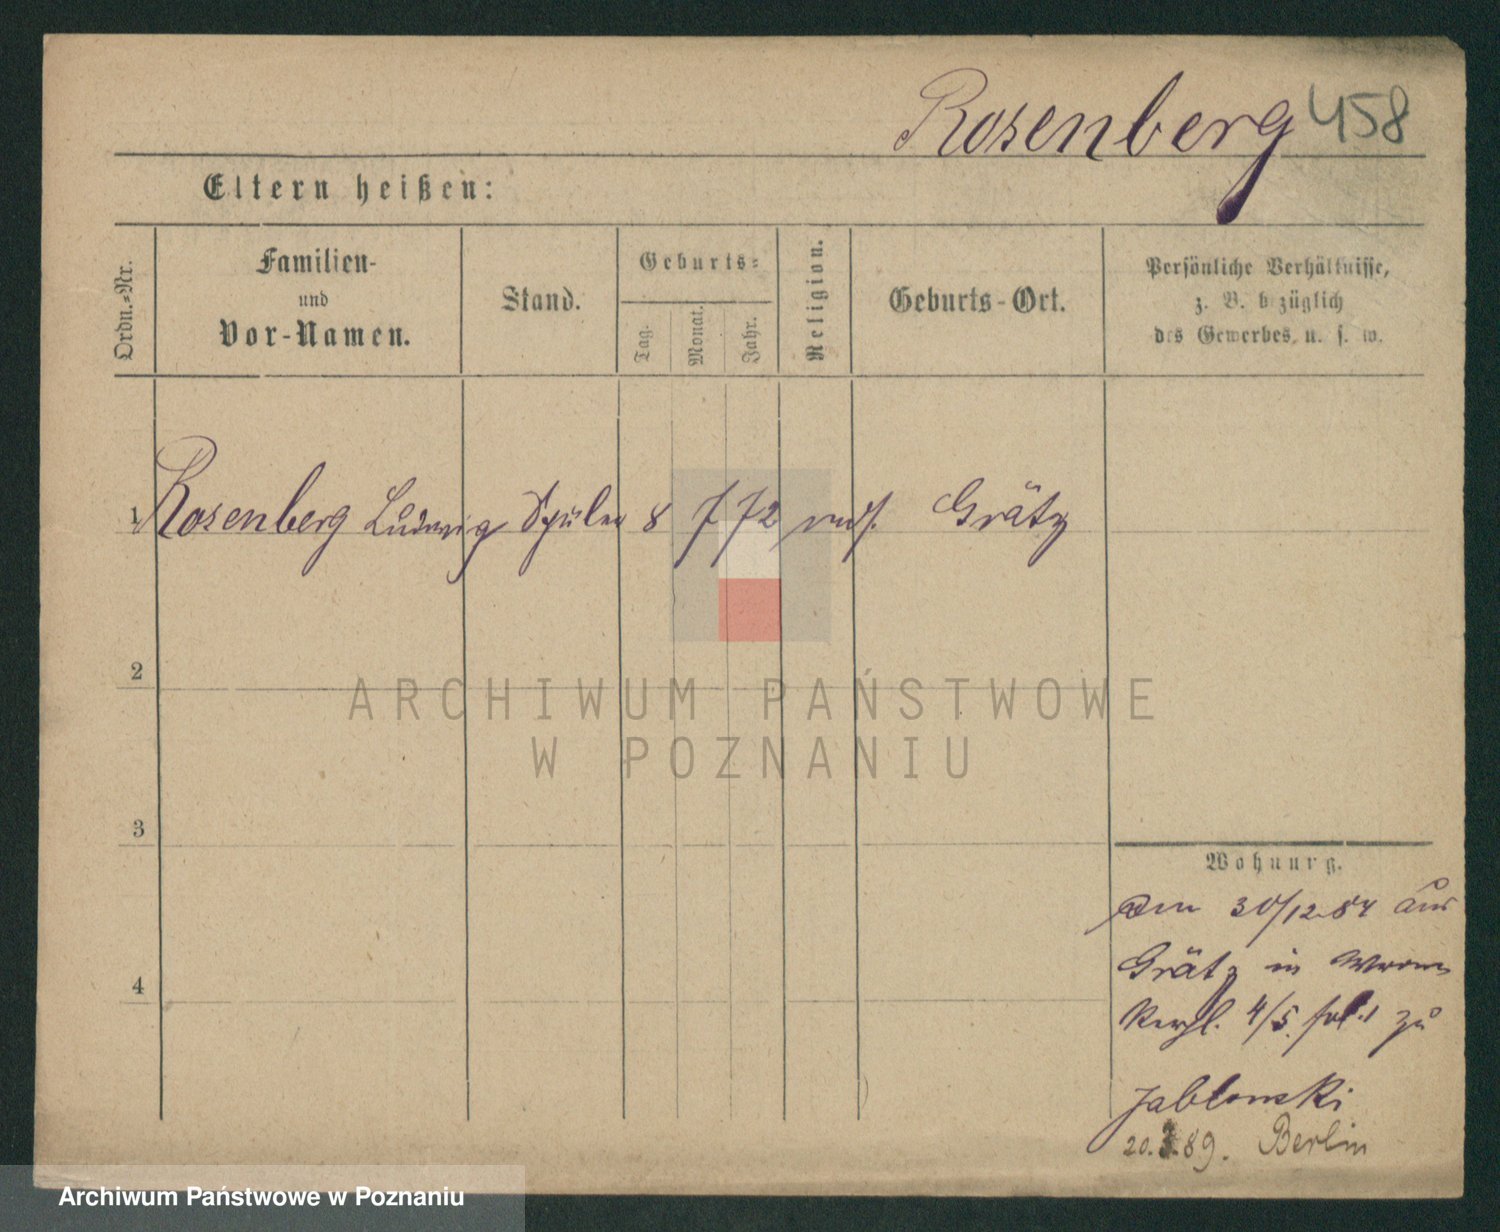 Rosenberg 458
Eltern heißen:
Ordn.=Nr.
Familien-
und
Vor-Namen.
Stand.
Geburts=
Tag.
Monat.
Jahr.
Religion.
Geburts-Ort.
Persönliche Verhältnisse,
z. B. bezüglich
des Gewerbes, u. s. w.
1 Rosenberg Ludwig 8 7 72 Grätz
2
ARCHIWUM PAŃSTWOWE
W POZNANIU
3
4
Wohnung.
Den 30/12 84 aus
Grätz in
4/5 zu
Jablonski
20.3.89. Berlin
Archiwum Państwowe w Poznaniu